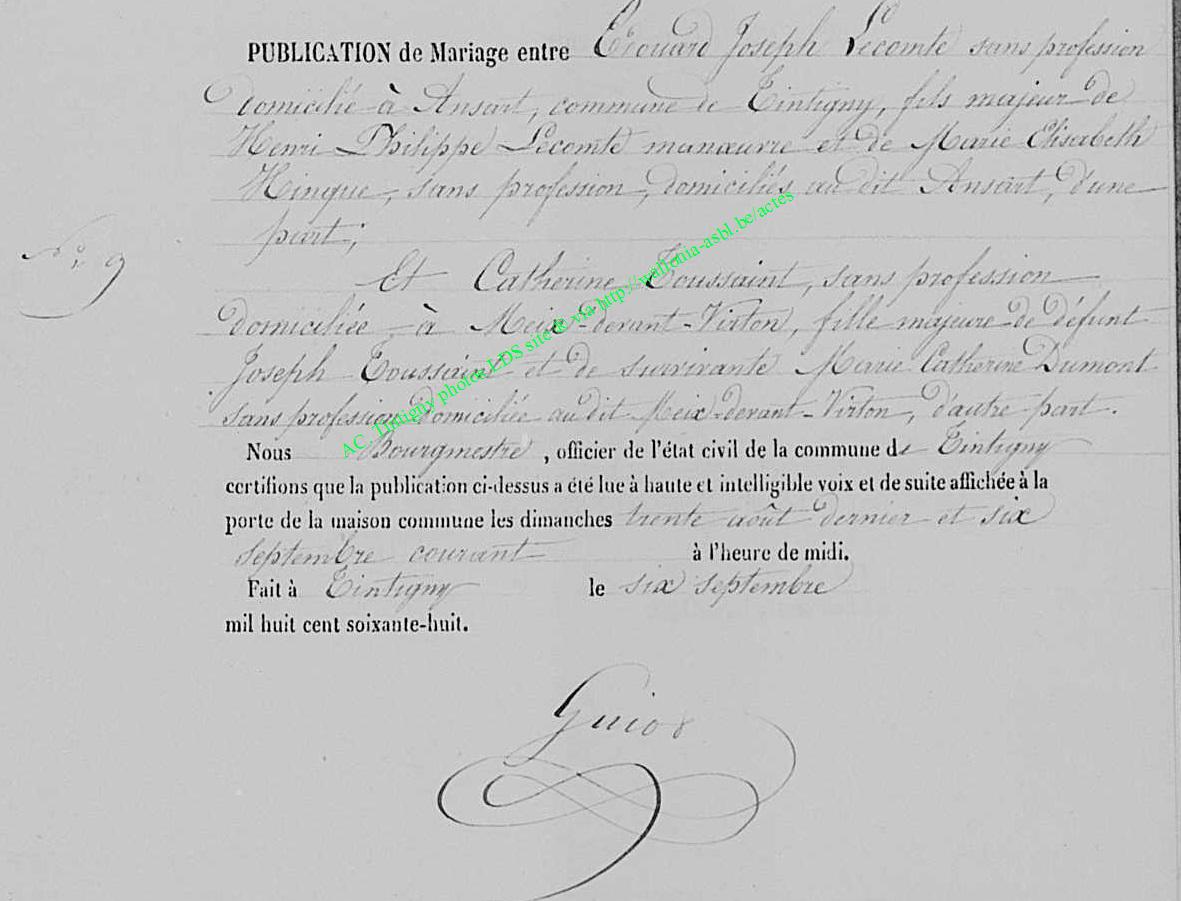 PUBLICATION de Mariage entre Edouard Joseph Lecomte sans profession
domicilié à Ansart, commune de Tintigny, fils majeur de
Henri Philippe Lecomte manœuvre et de Marie Elisabeth
Hinque, sans profession, domiciliés au dit Ansart, d'une
part;
N° 9
Et Catherine Toussaint, sans profession
domiciliée à Meix-devant-Virton, fille majeure de défunt
Joseph Toussaint et de survivante Marie Catherine Dumont
sans profession domiciliée au dit Meix-devant-Virton, d'autre part.
Nous Bourgmestre, officier de l'état civil de la commune de Tintigny
certifions que la publication ci-dessus a été lue à haute et intelligible voix et de suite affichée à la
porte de la maison commune les dimanches trente août dernier et six
septembre courant à l'heure de midi.
Fait à Tintigny le six septembre
mil huit cent soixante-huit.
AC. Tintigny photos LDS site & via http://wallonia-asbl.be/actes